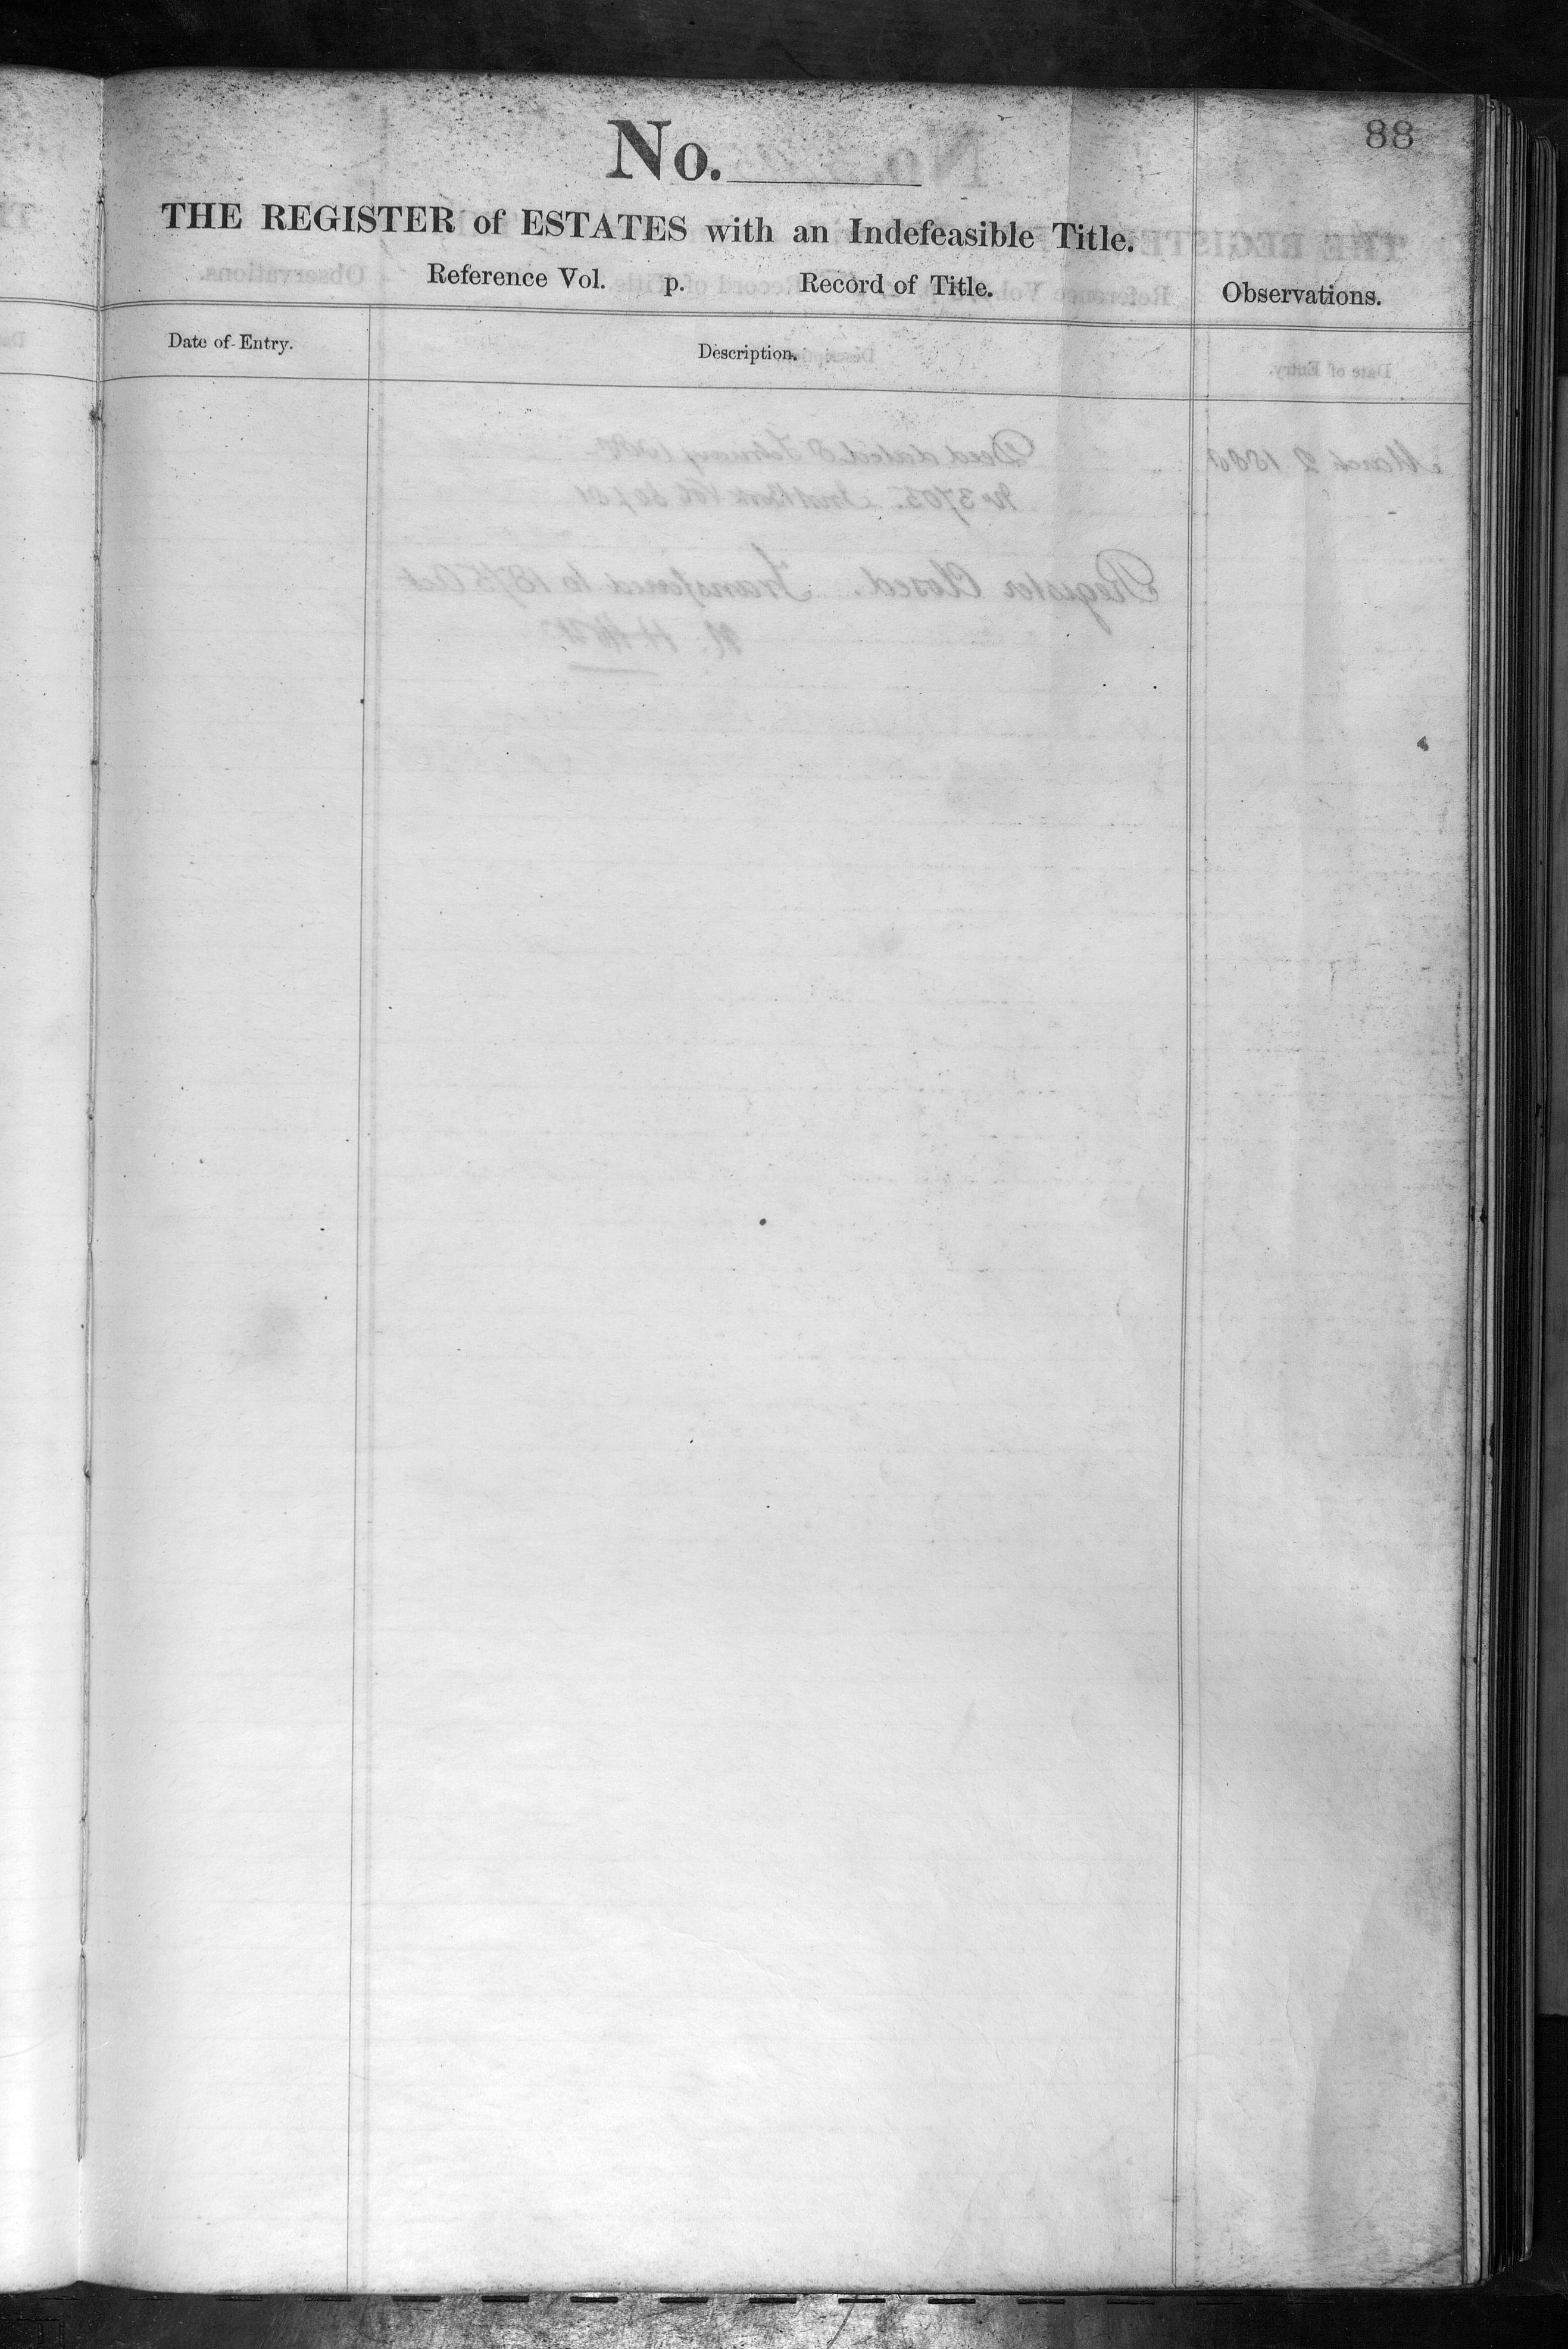 88
No.
THE REGISTER of ESTATES with an Indefeasible Title.
Reference Vol. p. Record of Title.
Observations.
Date of Entry.
Description.
March 2 1880
Deed dated February
Register Closed. Transferred to 1875 Act